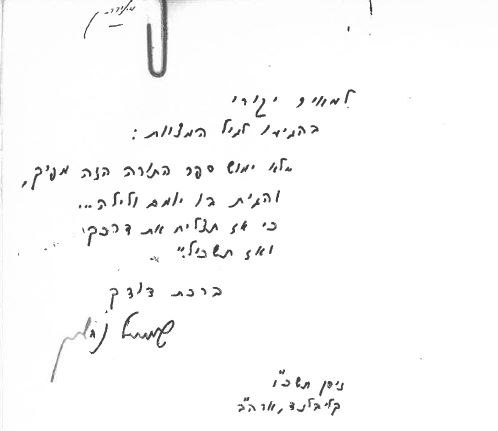 למאיר יקירי
בהגיעו לגיל המצוות:
"לא ימוש ספר התורה הזה מפיך,
והגית בו יומם ולילה...
כי אז תצליח את דרכך
ואז תשכיל."
ברכת דודך
ניסן תשכ"ו
קליבלנד, ארה"ב